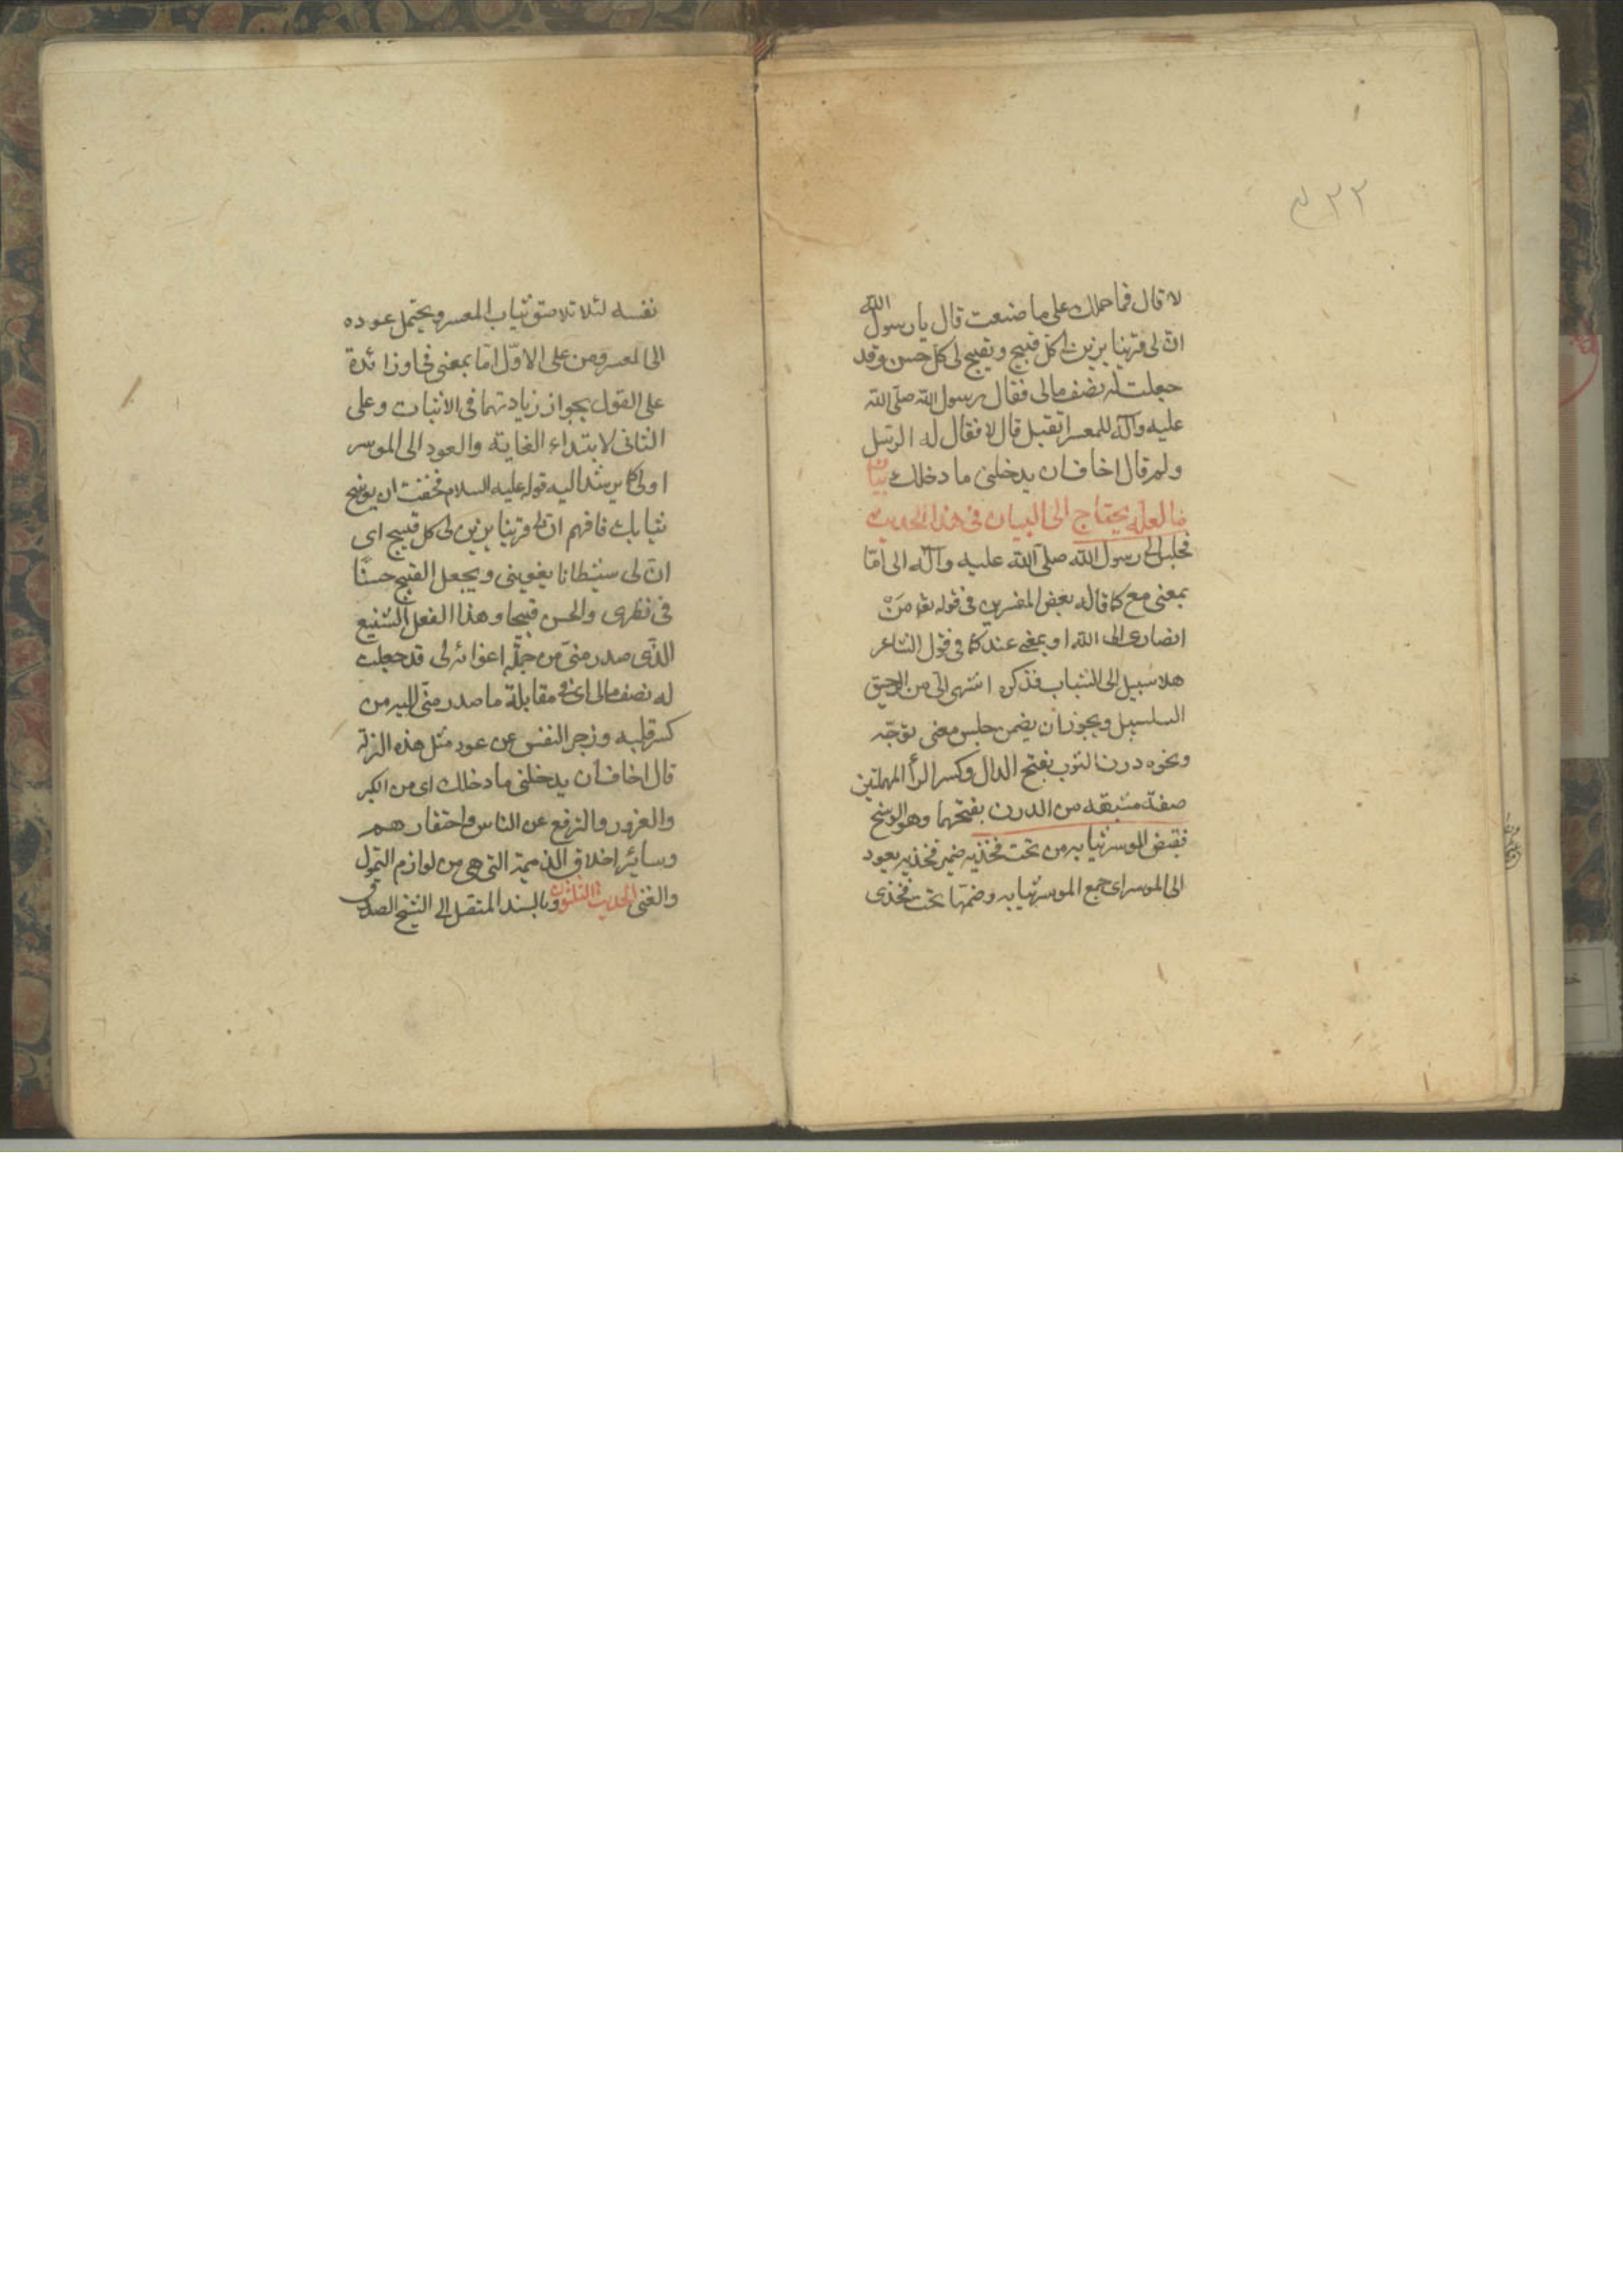 لا قال فما حملك على ما صنعت قال يا رسول الله
ان لى قرينا يزين لى كل قبيح و يقبح لى كل حسن وقد
جعلت له نصف مالى فقال رسول الله صلى الله
عليه وآله للمعسر اتقبل قال لا فقال له الرجل
ولم قال اخاف ان يدخلنى ما دخلك بيان
ما لعله يحتاج الى البيان فى هذا الحديث
فجلس الى رسول الله صلى الله عليه وآله الى اما
بمعنى مع كما قاله بعض المفسرين فى قوله تعه مَنْ
انصارى الى الله او بمعنى عند كما فى قول الشاعر
هلا سبيل الى الشباب فذكره اشهى الى من الرحيق
السلسبيل ويجوز ان يضمن جلس معنى توجّه
ونحوه درن الثوب بفتح الدال وكسر الرأ المهملتين
صفة مشبهه من الدرن بفتحهما وهو الوسخ
فقبض الموسر ثيابه من تحت فخذيه ضمير فخذيه يعود
الى الموسر اى جمع الموسر ثيابه وضمها تحت فخذى
نفسه لئلا تلاصق ثياب المعسر ويحتمل عوده
الى المعسر ومن على الاوّل امّا بمعنى فى او زائدة
على القول بجواز زيادتها فى الاثبات وعلى
الثانى لابتداء الغاية والعود الى الموسر
اولى كما يرشد اليه قوله عليه السلام فخفت ان يوسخ
ثيابك فافهم ان لى قرينا يزين لى كل قبيح اى
ان لى شيطانا يغوينى ويجعل القبيح حسنًا
فى نظرى والحسن قبيحا وهذا الفعل الشنيع
الذى صدر منى من جملة اغوائه لى قد جعلت
له نصف مالى اى فى مقابلة ما صدر منى اليه من
كسر قلبه وزجر النفس عن عود مثل هذه الزلة
قال اخاف ان يدخلنى ما دخلك اى من الكبر
والغرور والترفع عن الناس واحتقارهم
وسائر اخلاق الذميمة التى هى من لوازم التمول
والغنى الحديث الثلثون وبالسند المتصل الى الشيخ الصدوق